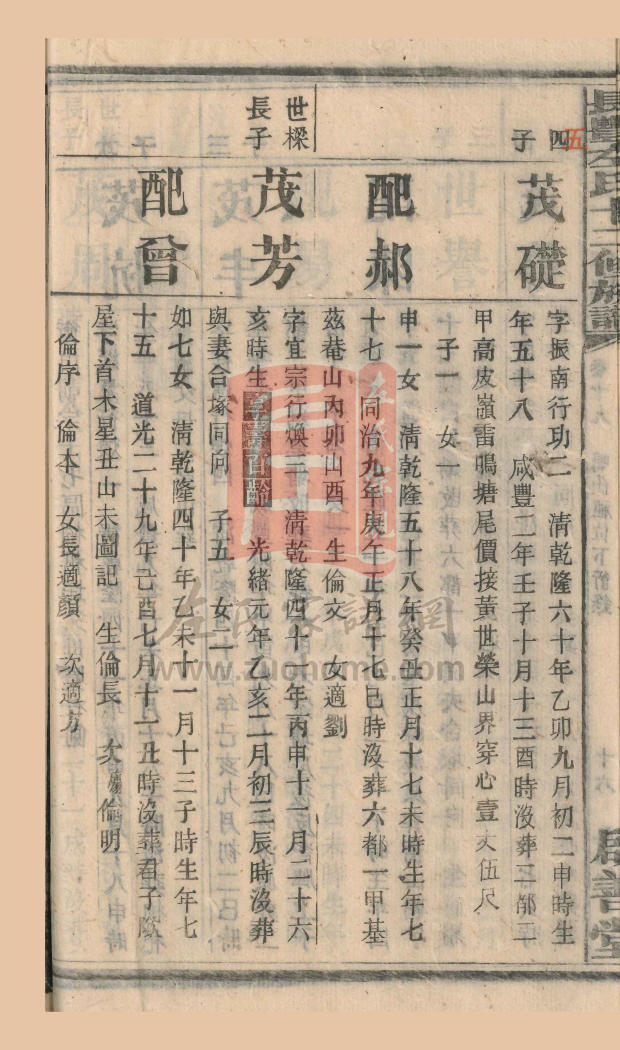 長豐左氏十二修族譜
居善堂
四子
五
茂礎
字振南行功二 清乾隆六十年乙卯九月初二申時生
年五十八 咸豐二年壬子十月十三酉時沒葬二都二
甲高皮嶺雷鳴塘尾價接黃世榮山界穿心壹丈伍尺
子一 女一
配郝
申一女 清乾隆五十八年癸丑正月十七未時生年七
十七 同治九年庚午正月十七巳時沒葬六都一甲基
茲菴山內卯山酉 生倫文 女適劉
世樑長子
茂芳
字宜宗行煥三 清乾隆四十一年丙申十一月二十六
亥時生享壽百齡 光緒元年乙亥二月初三辰時沒葬
與妻合塚同向 子五 女二
配曾
如七女 清乾隆四十年乙未十一月十三子時生年七
十五 道光二十九年己酉七月十一丑時沒葬君子
屋下首木星丑山未圖記 生倫長 次倫明
倫序 倫本 女長適顏 次適方
左氏家譜網
www.zuoname.com